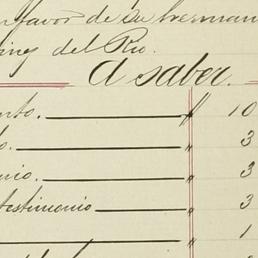 favor de su herman
del Rio.
A saber.
ento. $ 10
o. " 3
nio. " 3
testimonio " 3
" 1